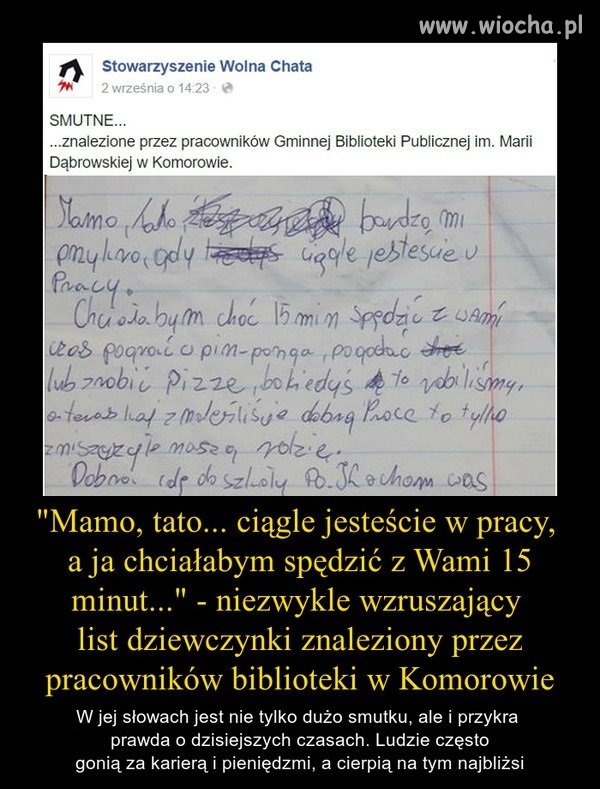 www.wiocha.pl
Stowarzyszenie Wolna Chata
2 września o 14:23 ·
SMUTNE...
...znalezione przez pracowników Gminnej Biblioteki Publicznej im. Marii
Dąbrowskiej w Komorowie.
Mamo, tato, bardzo mi
przykro, gdy ciągle jesteście w
Pracy.
Chciałabym choć 15 min spędzić z wami
czas pograć w pin-ponga, pogadać
lub zrobić Pizze, bo kiedyś to robiliśmy,
a teraz kaj znaleźliście dobrą Pracę to tylko
zniszczyle naszą rodzię.
Dobra idę do szkoły Pa. Kocham was
"Mamo, tato... ciągle jesteście w pracy,
a ja chciałabym spędzić z Wami 15
minut..." - niezwykle wzruszający
list dziewczynki znaleziony przez
pracowników biblioteki w Komorowie
W jej słowach jest nie tylko dużo smutku, ale i przykra
prawda o dzisiejszych czasach. Ludzie często
gonią za karierą i pieniędzmi, a cierpią na tym najbliżsi